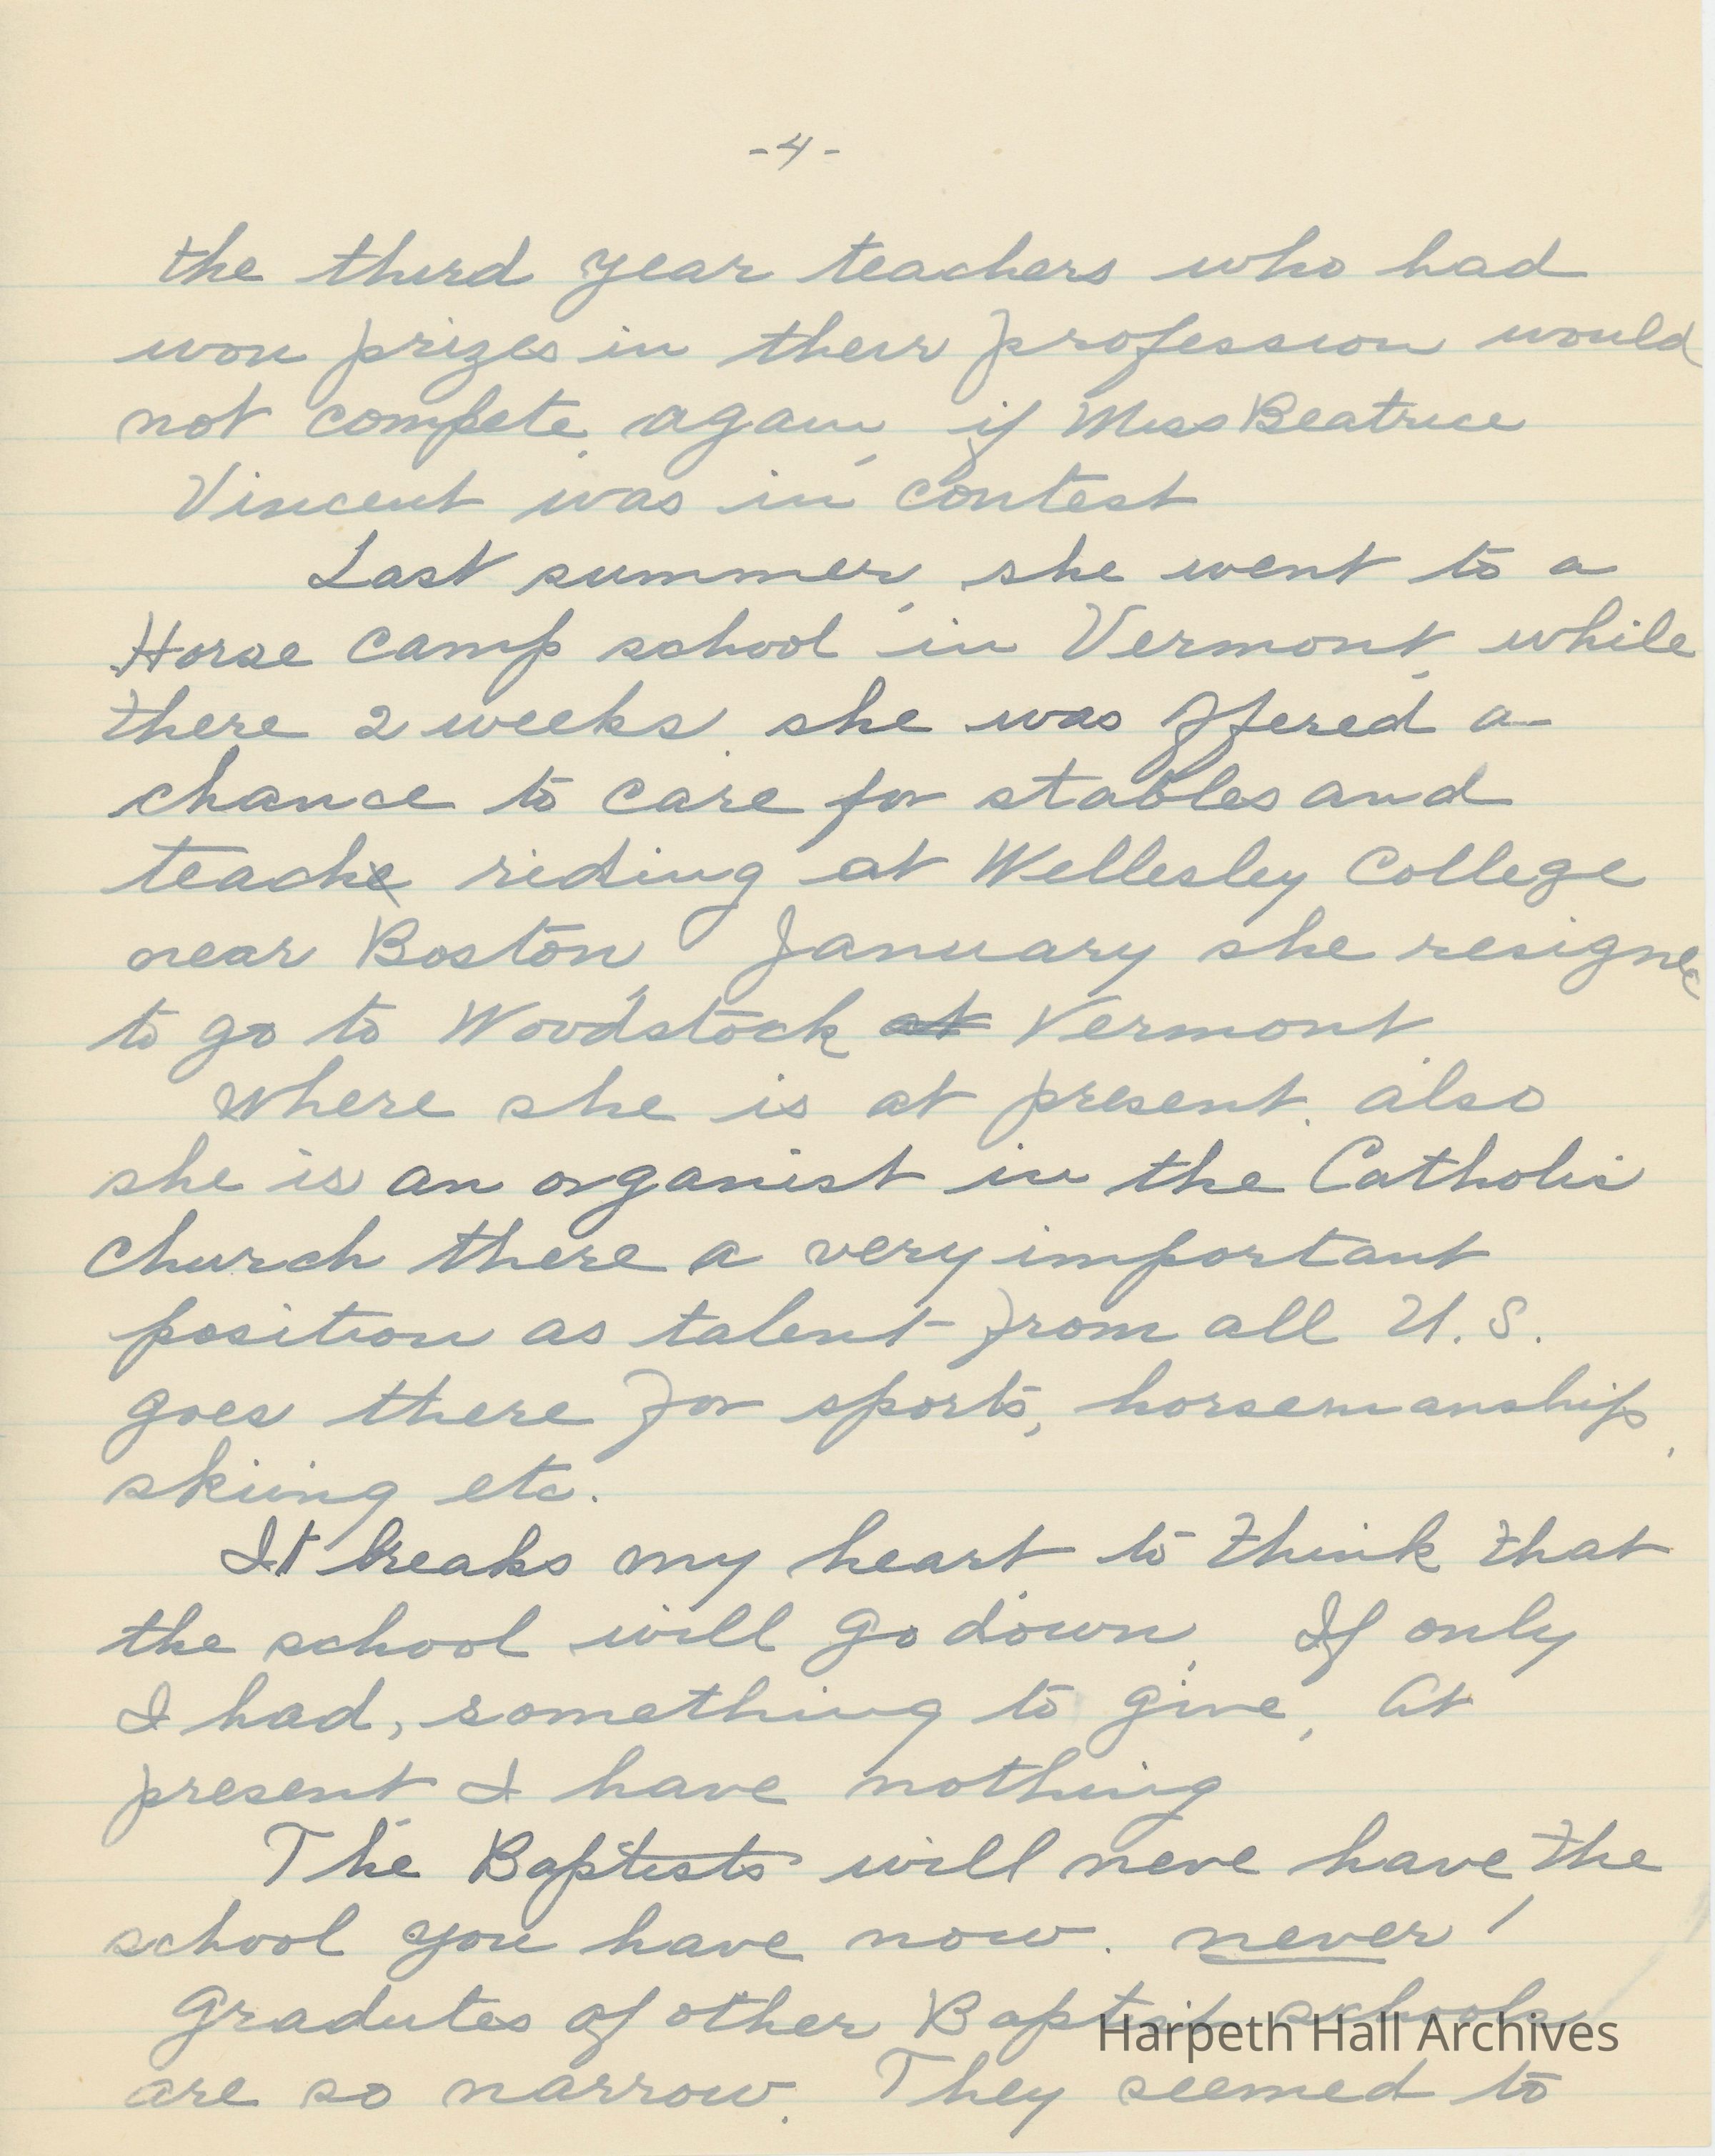 -4-
the third year teachers who had
won prizes in their profession would
not compete again, if Miss Beatrice
Vincent was in contest
Last summer, she went to a
Horse camp school in Vermont, while
there 2 weeks. she was offered a
chance to care for stables and
teach riding at Wellesley College
near Boston, January she resigned
to go to Woodstock at Vermont.
where she is at present. also
she is an organist in the Catholic
church there a very important
position as talent from all U.S.
goes there for sports, horsemanship,
skiing etc.
It breaks my heart to think that
the school will go down. If only
I had, something to give, at
present I have nothing
The Baptists will neve have the
school you have now. never!
Gradutes of other Baptist schools
Harpeth Hall Archives
are so narrow. They seemed to